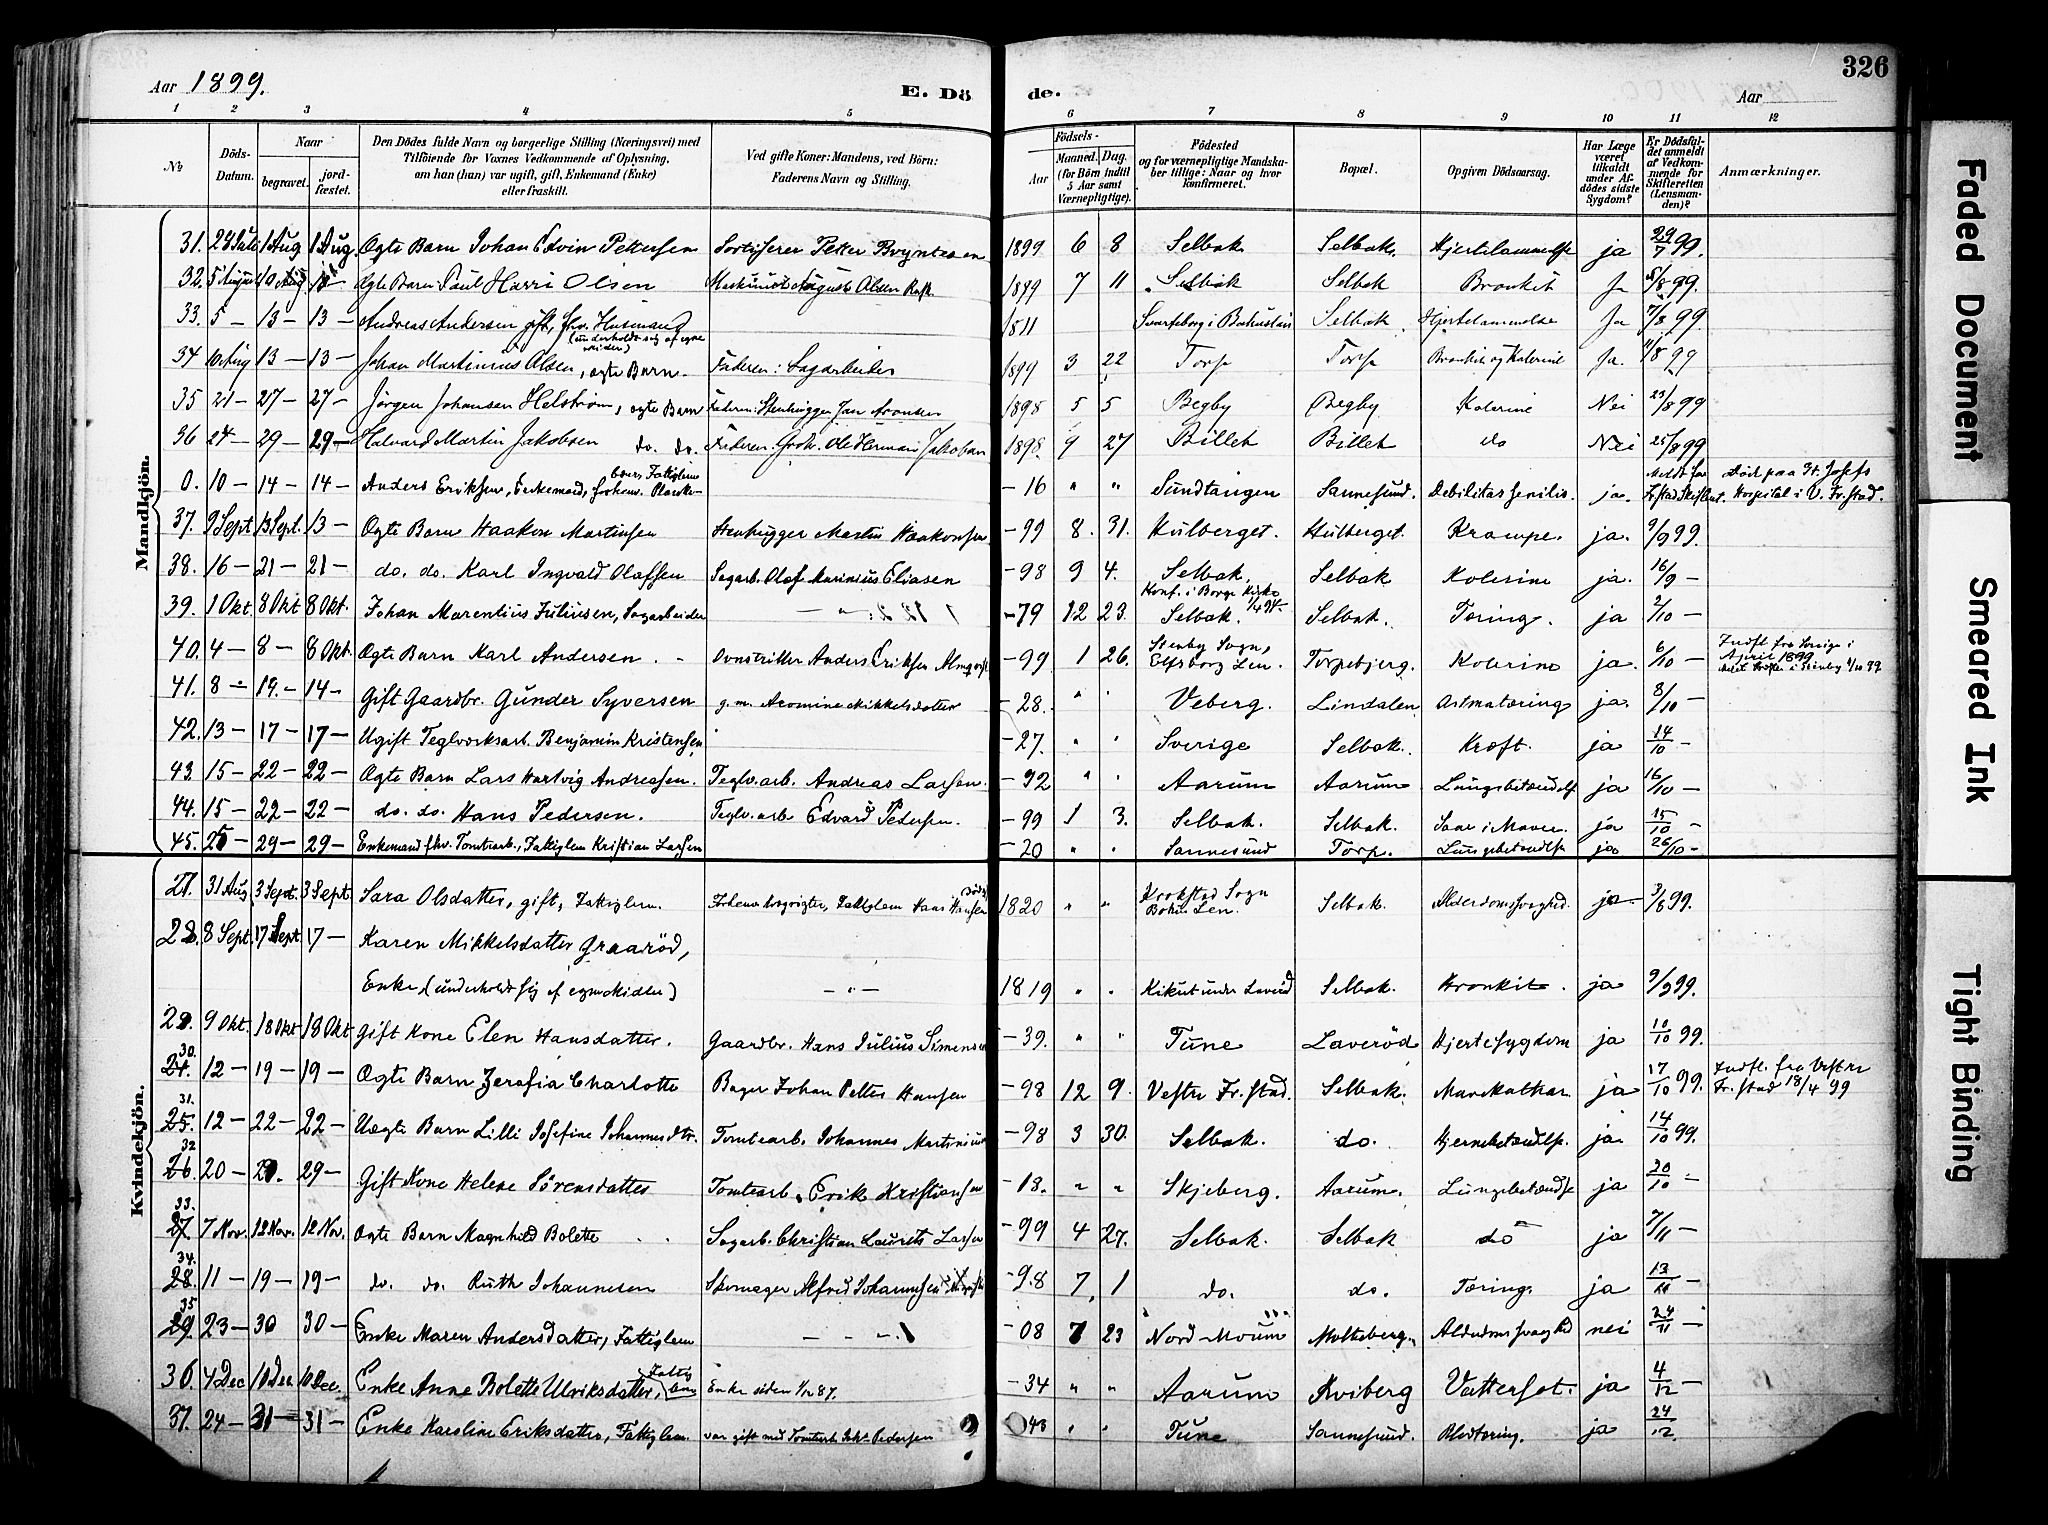 Aar 1899.
E. Döde.
Aar
326
1 2 3 4 5 6 7 8 9 10 11 12
No
Döds-Datum.
Naar
begravet.
jordfæstet.
Den Dödes fulde Navn og borgerlige Stilling (Næringsvei) med
Tilföiende for Voxnes Vedkommende af Oplysning,
om han (hun) var ugift, gift, Enkemand (Enke)
eller fraskilt.
Ved gifte Koner: Mandens, ved Börn:
Faderens Navn og Stilling.
Födsels-
Aar
Maaned. Dag.
(for Börn indtil
5 Aar samt
Værnepligtige).
Födested
og for værnepligtige Mandskaber tillige: Naar og hvor
konfirmeret.
Bopæl.
Opgiven Dödsaarsag.
Har Læge
været
tilkaldt
under Afdödes sidste
Sygdom?
Er Dödsfaldet anmeldt
af Vedkommende for
Skifteretten
(Lensmanden)?
Anmærkninger.
Mandkjön.
31. 28 Juli 1 Aug 1 Aug. Ægte Barn Johan Edvin Pettersen Sortiserer Petter Bryntesen 1899 6 8 Selbak Selbak. Hjertelammelse ja 29/7 99.
32. 5 August 10 Aug. Ægte Barn Paul Harri Olsen Maskinist August Olsen 1899 7 11 Selbak Selbak Bronkit Ja 5/8 99.
33. 5 — 13 — 13 — Andreas Andersen gift, fhv. Husmand (underholdt sig af egne Midler) 1811 Svarteborg i Bohuslän Selbak Hjertelammelse Ja 7/8 99
34 10 Aug 13 — 13 — Johan Martinius Olsen, ægte Barn. Faderen: Sagarbeider 1899 3 22 Torp Torp Bronkit og Kolerine Ja. 11/8 99
35 21 — 27 — 27 — Jörgen Johansen Helström, ægte Barn Faderen: Stenhugger Jan 1898 5 5 Begby Begby Kolerine Nei 23/8 99
36 24 — 29 — 29 — Halvard Martin Jakobsen do. do. Faderen: Ole Herman Jakobsen 1898. 9 27 Billet Billet do Nei 25/8 99
0. 10 — 14 — 14 — Anders Eriksen, Enkemand, forhenv. Fattiglem — 16 " " Sundtangen Sannesund. Debilitas senilis. ja. Fr.stad Skifteret. Död paa St. Josefs Hospital i V. Fr.stad.
37. 9 Sept. 13 Sept. 13 — Ægte Barn Haakon Martinsen Stenhugger Martin Haakonsen — 99 8. 31. Hulberget. Hulberget. Krampe. ja. 9/9 99.
38. 16 — 21 — 21 — do. do. Karl Ingvald Olafsen Sagarb. Olaf Marinius Eliasen — 98 9 4. Selbak. Selbak Kolerine ja. 16/9 —
39. 1 Okt. 8 Okt 8 Okt. Johan Marentius Juliussen, Sagarbeider — " — — 79 12 23. Konf. i Borge Kirke Selbak. Selbak. Tæring. ja 2/10 —
40. 4 — 8 — 8 Okt. Ægte Barn Karl Andersen. Ovnstiller Anders Eriksen Almqvist — 99. 1 26. Stenby Sogn, Elfsborg Len. Torpebjerg. Kolerine ja. 6/10 — Indft. fra Sverige i April 1899
41. 8 — 19. — 14 — Gift Gaardbr. Gunder Syversen g. m. Aromine Mikkelsdatter — 28. " " Veberg. Lindalen Astmatæring ja. 8/10 —
42. 13 — 17 — 17 — Ugift Teglværksarb. Benjamin Kristensen — 27. " " Sverige Selbak. Kræft. ja 14/10 —
43. 15 — 22 — 22 — Ægte Barn Lars Hartvig Andreasen. Teglv.arb. Andreas Larsen. — 92 " " Aarum Aarum Lungebetændelse ja 16/10 —
44. 15 — 22 — 22 — do. do. Hans Pedersen. Teglv.arb Edvard Pedersen. — 99 1 3. Selbak. Selbak. Saar i Maven. ja 15/10 —
45. 25 — 29 — 29 — Enkemand fhv. Tomtearb., Fattiglem Kristian Larsen — 20 " " Sannesund Torp. Lungebetændelse ja 26/10 —
Kvindekjön.
27. 31 Aug 3 Sept. 3 Sept. Sara Olsdatter, gift, Fattiglem. Fattiglem Hans Hansen 1820 " " Krokstad Sogn Bohus Len. Selbak. Alderdomssvaghed. ja 3/8 99.
28. 8 Sept. 17 Sept. 17 — Karen Mikkelsdatter Graaröd,
Enke, (underholdt sig af egne Midler) — " — 1819 " " Kikut under Laveröd Selbak. Bronkit. ja 9/9 99.
29. 9 Okt. 18 Okt 18 Okt Gift Kone Elen Hansdatter. Gaardbr. Hans Julius Simensen — 39. " " Tune Laveröd Hjertesygdom ja 10/10 99.
30. 24. 12 — 19 — 19 — Ægte Barn Zerafia Charlotte Bager Johan Petter Hansen — 98 12 9. Vestre Fr.stad. Selbak. Mavekathar ja 17/10 99. Indfl. fra Vestre Fr.stad 18/4 99
31. 25. 12 — 22 — 22 — Uægte Barn Lilli Josefine Johannesdtr. Tomtearb. Johannes Martinius — 98 3 30. Selbak. do. Hjernebetændelse. ja 14/10 99.
32 26. 20 — 29. 29 — Gift Kone Helene Sörensdatter Tomtearb. Erik Kristiansen — 13. " " Skjeberg. Aarum. Lungebetændelse ja 20/10 —
33. 27. 7 Nov. 12 Nov. 12 Nov. Ægte Barn Magnhild Bolette Sagarb. Christian Laurits Larsen — 99 4 27. Selbak. Selbak do ja 7/11 —
34. 28. 11 — 19 — 19 — do. do. Ruth Johannesen Skomager Alfred Johannesen — 98 7 1 do. do. Tæring. ja 13/11 —
35 29. 23 — 30 30 — Enke Maren Andersdatter, Fattiglem — " — — 08 7 23 Nord-Moum Molteberg. Alderdomssvaghed nei 24/11 —
36. 4 Dec 10 Dec 10 Dec. Enke Anne Bolette Ulriksdatter, Fattiglem Enke siden 1/12 87. — 34 " " Aarum Kviberg Vattersot. ja 4/12 —
37. 24 — 31 — 31 — Enke Karoline Eriksdatter, Fattiglem. var gift med Tomtearb. Pedersen 43 " " Tune Sannesund. Blodtæring. ja 24/12.
Faded Document
Smeared Ink
Tight Binding